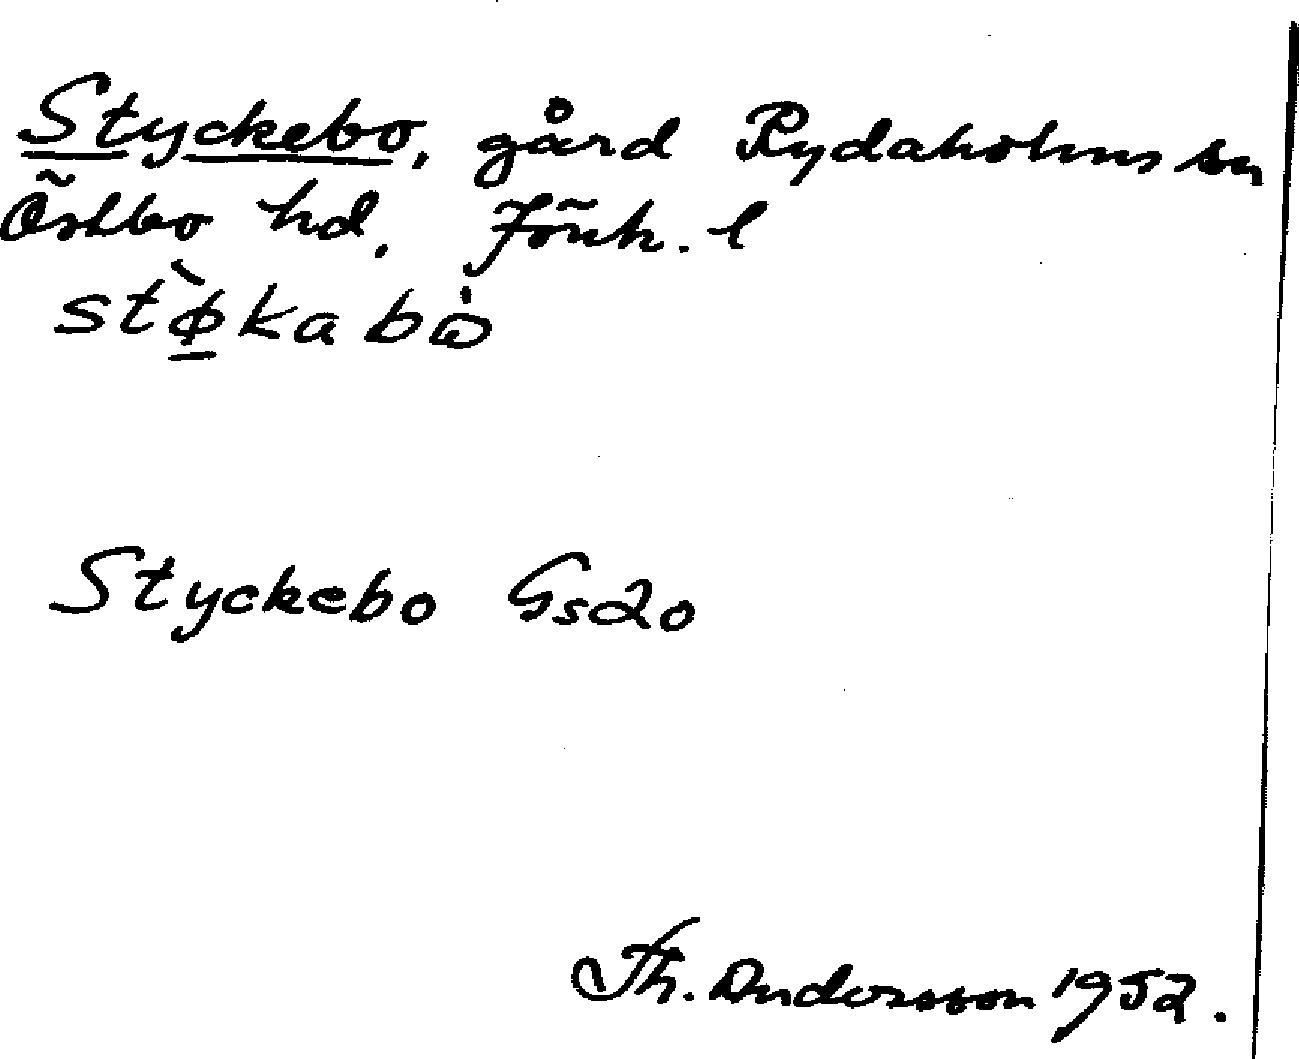 Styckebo, gård Rydaholms sn
Östbo hd. Jönk. l
stø̀kabò
Styckebo Gs20
Th. Andersson 1952.